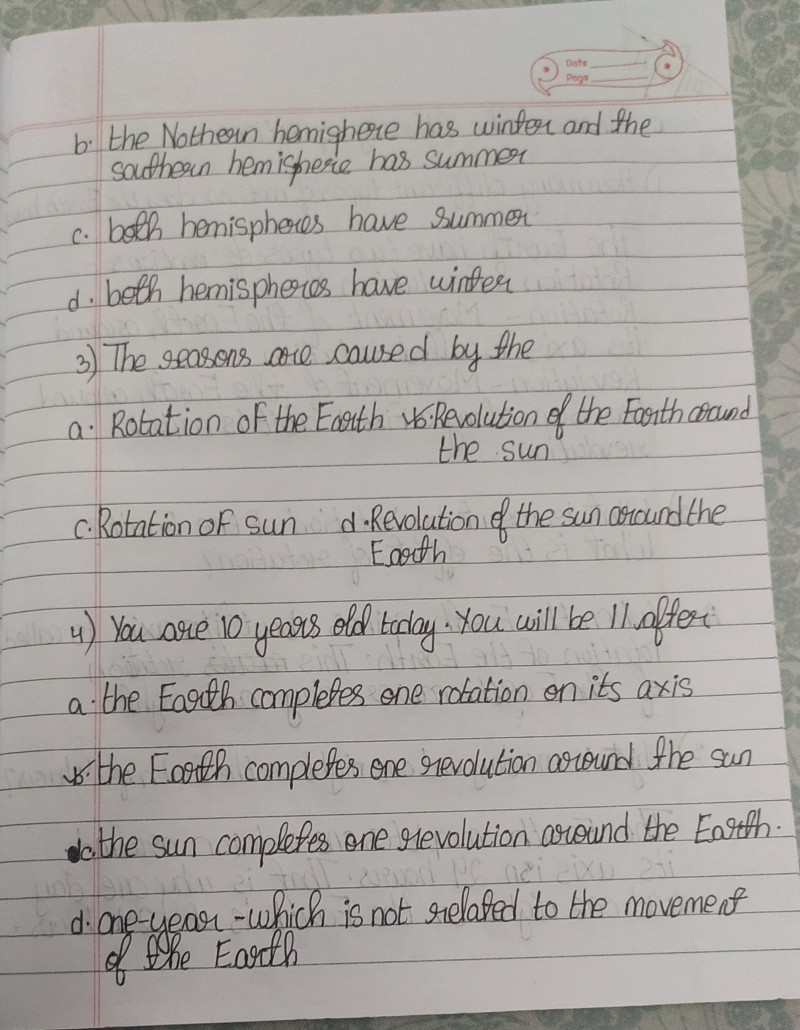 Date
Page
b. the Nothern hemighere has winter and the
southern hemisphere has summer
c. both hemispheres have summer
d. both hemispheres have winter
3) The seasons are caused by the
a. Rotation of the Earth b. Revolution of the Earth around
the sun
c. Rotation of sun d. Revolution of the sun around the
Earth
4) You are 10 years old today. You will be 11 after
a. the Earth completes one rotation on its axis
b. the Earth completes one revolution around the sun
c. the sun completes one revolution around the Earth.
d. one-year - which is not related to the movement
of the Earth